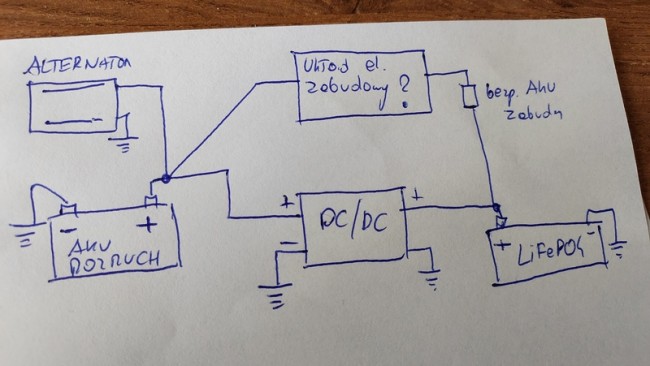 ALTERNATOR
Układ el.
zabudowy
?
bezp. Aku
zabudo
+
+
DC/DC
-
-
+
AKU
ROZRUCH
+
-
LiFePO4